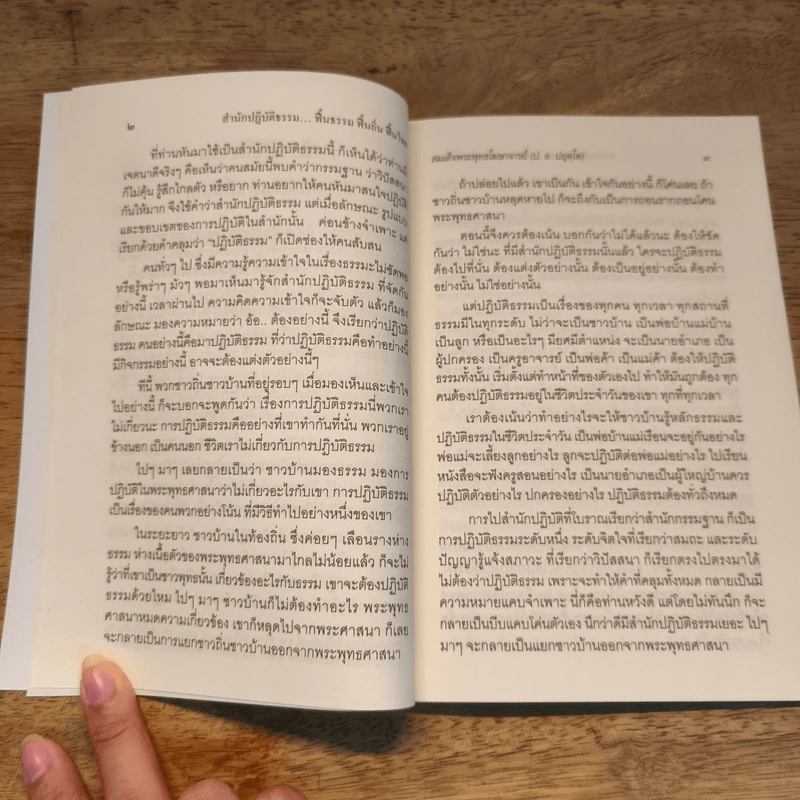 ๒
สำนักปฏิบัติธรรม... ฟื้นธรรม ฟื้นถิ่น ฟื้นไทย
ที่ท่านหันมาใช้เป็นสำนักปฏิบัติธรรมนี้ ก็เห็นได้ว่าท่านมี
เจตนาดีจริงๆ คือเห็นว่าคนสมัยนี้พบคำว่ากรรมฐาน ว่าวิปัสสนา
ก็ไม่คุ้น รู้สึกไกลตัว หรือยาก ท่านอยากให้คนหันมาสนใจปฏิบัติ
กันให้มาก จึงใช้คำว่าสำนักปฏิบัติธรรม แต่เมื่อลักษณะ รูปแบบ
และขอบเขตของการปฏิบัติในสำนักนั้น ค่อนข้างจำเพาะ แต่
เรียกด้วยคำคลุมว่า "ปฏิบัติธรรม" ก็เปิดช่องให้คนสับสน
คนทั่วๆ ไป ซึ่งมีความรู้ความเข้าใจในเรื่องธรรมะไม่ชัดพอ
หรือรู้พร่าๆ มัวๆ พอมาเห็นมารู้จักสำนักปฏิบัติธรรม ที่จัดกัน
อย่างนี้ เวลาผ่านไป ความคิดความเข้าใจก็จะจับตัว แล้วก็มอง
ลักษณะ มองความหมายว่า อ้อ.. ต้องอย่างนี้ จึงเรียกว่าปฏิบัติ
ธรรม คนอย่างนี้คือมาปฏิบัติธรรม ที่ว่าปฏิบัติธรรมคือทำอย่างนี้
มีกิจกรรมอย่างนี้ อาจจะต้องแต่งตัวอย่างนี้ๆ
ทีนี้ พวกชาวถิ่นชาวบ้านที่อยู่รอบๆ เมื่อมองเห็นและเข้าใจ
ไปอย่างนี้ ก็จะบอกจะพูดกันว่า เรื่องการปฏิบัติธรรมนี่พวกเรา
ไม่เกี่ยวนะ การปฏิบัติธรรมคืออย่างที่เขาทำกันที่นั่น พวกเราอยู่
ข้างนอก เป็นคนนอก ชีวิตเราไม่เกี่ยวกับการปฏิบัติธรรม
ไปๆ มาๆ เลยกลายเป็นว่า ชาวบ้านมองธรรม มองการ
ปฏิบัติในพระพุทธศาสนาว่าไม่เกี่ยวอะไรกับเขา การปฏิบัติธรรม
เป็นเรื่องของคนพวกอย่างโน้น ที่มีวิธีทำไปอย่างหนึ่งของเขา
ในระยะยาว ชาวบ้านในท้องถิ่น ซึ่งค่อยๆ เลือนรางห่าง
ธรรม ห่างเนื้อตัวของพระพุทธศาสนามาไกลไม่น้อยแล้ว ก็จะไม่
รู้ว่าที่เขาเป็นชาวพุทธนั้น เกี่ยวข้องอะไรกับธรรม เขาจะต้องปฏิบัติ
ธรรมด้วยไหม ไปๆ มาๆ ชาวบ้านก็ไม่ต้องทำอะไร พระพุทธ
ศาสนาหมดความเกี่ยวข้อง เขาก็หลุดไปจากพระศาสนา ก็เลย
จะกลายเป็นการแยกชาวถิ่นชาวบ้านออกจากพระพุทธศาสนา
สมเด็จพระพุทธโฆษาจารย์ (ป. อ. ปยุตฺโต)
๓
ถ้าปล่อยไปแล้ว เขาเป็นกัน เข้าใจกันอย่างนี้ ก็โค่นเลย ถ้า
ชาวถิ่นชาวบ้านหลุดหายไป ก็จะถึงกับเป็นการถอนรากถอนโคน
พระพุทธศาสนา
ตอนนี้จึงควรต้องเน้น บอกกันว่าไม่ได้แล้วนะ ต้องให้ชัด
กันว่า ไม่ใช่นะ ที่มีสำนักปฏิบัติธรรมนั้นแล้ว ใครจะปฏิบัติธรรม
ต้องไปที่นั่น ต้องแต่งตัวอย่างนั้น ต้องเป็นอยู่อย่างนั้น ต้องทำ
อย่างนั้น ไม่ใช่อย่างนั้น
แต่ปฏิบัติธรรมเป็นเรื่องของทุกคน ทุกเวลา ทุกสถานที่
ธรรมมีในทุกระดับ ไม่ว่าจะเป็นชาวบ้าน เป็นพ่อบ้านแม่บ้าน
เป็นลูก หรือเป็นอะไรๆ มียศมีตำแหน่ง จะเป็นนายอำเภอ เป็น
ผู้ปกครอง เป็นครูอาจารย์ เป็นพ่อค้า เป็นแม่ค้า ต้องให้ปฏิบัติ
ธรรมทั้งนั้น เริ่มตั้งแต่ทำหน้าที่ของตัวเองไป ทำให้มันถูกต้อง ทุก
คนต้องปฏิบัติธรรมอยู่ในชีวิตประจำวันของเขา ทุกที่ทุกเวลา
เราต้องเน้นว่าทำอย่างไรจะให้ชาวบ้านรู้หลักธรรมและ
ปฏิบัติธรรมในชีวิตประจำวัน เป็นพ่อบ้านแม่เรือนจะอยู่กันอย่างไร
พ่อแม่จะเลี้ยงลูกอย่างไร ลูกจะปฏิบัติต่อพ่อแม่อย่างไร ไปเรียน
หนังสือจะฟังครูสอนอย่างไร เป็นนายอำเภอเป็นผู้ใหญ่บ้านควร
ปฏิบัติตัวอย่างไร ปกครองอย่างไร ปฏิบัติธรรมต้องทั่วถึงหมด
การไปสำนักปฏิบัติที่โบราณเรียกว่าสำนักกรรมฐาน ก็เป็น
การปฏิบัติธรรมระดับหนึ่ง ระดับจิตใจที่เรียกว่าสมถะ และระดับ
ปัญญารู้แจ้งสภาวะ ที่เรียกว่าวิปัสสนา ก็เรียกตรงไปตรงมาได้
ไม่ต้องว่าปฏิบัติธรรม เพราะจะทำให้คำที่คลุมทั้งหมด กลายเป็นมี
ความหมายแคบจำเพาะ นี่ก็คือท่านหวังดี แต่โดยไม่ทันนึก ก็จะ
กลายเป็นบีบแคบโค่นตัวเอง นึกว่าดีมีสำนักปฏิบัติธรรมเยอะ ไปๆ
มาๆ จะกลายเป็นแยกชาวบ้านออกจากพระพุทธศาสนา